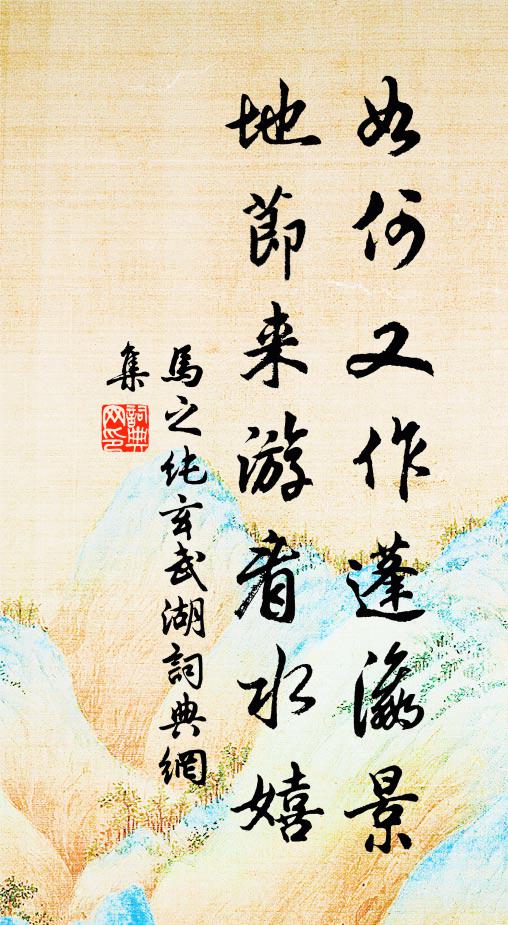 如何又作蓬瀛景
地節来游看水嬉
馬之纯玄武湖詞典網
集
詞典网印